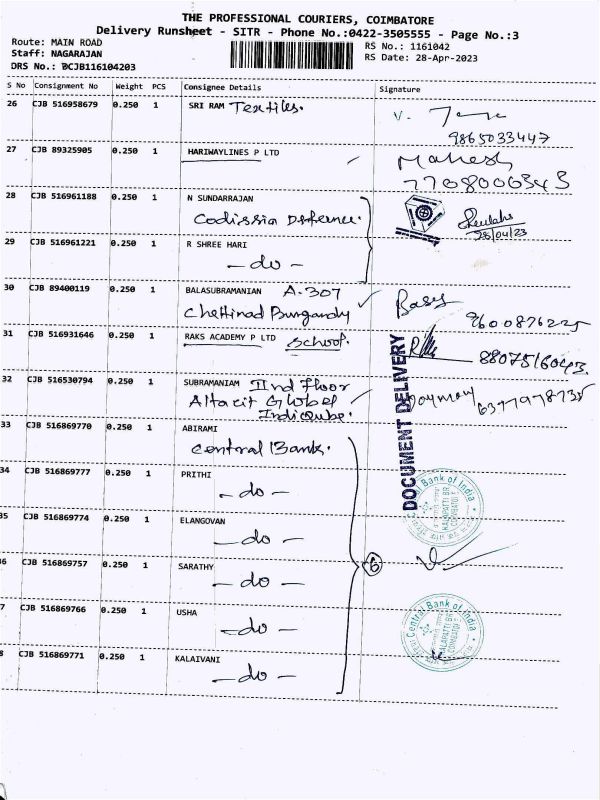 THE PROFESSIONAL COURIERS, COIMBATORE
Delivery Runsheet - SITR - Phone No.:0422-3505555 - Page No.:3
Route: MAIN ROAD
Staff: NAGARAJAN
DRS No.: DCJB116104203
RS No.: 1161042
RS Date: 28-Apr-2023
S No Consignment No Weight PCS Consignee Details Signature
26 CJB 516958679 0.250 1 SRI RAM Textiles.
9865033447
27 CJB 89325905 0.250 1 HARIWAYLINES P LTD Mahesh
7708006343
28 CJB 516961188 0.250 1 N SUNDARRAJAN
Codissia Defence.
28/04/23
29 CJB 516961221 0.250 1 R SHREE HARI
- do -
30 CJB 89400119 0.250 1 BALASUBRAMANIAN A-307
Chettinad Burgandy
9600876225
31 CJB 516931646 0.250 1 RAKS ACADEMY P LTD School.
DOCUMENT DELIVERY
32 CJB 516530794 0.250 1 SUBRAMANIAM IInd Floor
Altacit Global
IndiQube.
33 CJB 516869770 0.250 1 ABIRAMI
Central Bank.
34 CJB 516869777 0.250 1 PRITHI
- do -
Central Bank of India
KALAPATTI BR.
COIMBATORE
35 CJB 516869774 0.250 1 ELANGOVAN
- do -
6 CJB 516869757 0.250 1 SARATHY
- do -
6
7 CJB 516869766 0.250 1 USHA
- do -
Central Bank of India
KALAPATTI BR.
COIMBATORE
8 CJB 516869771 0.250 1 KALAIVANI
- do -